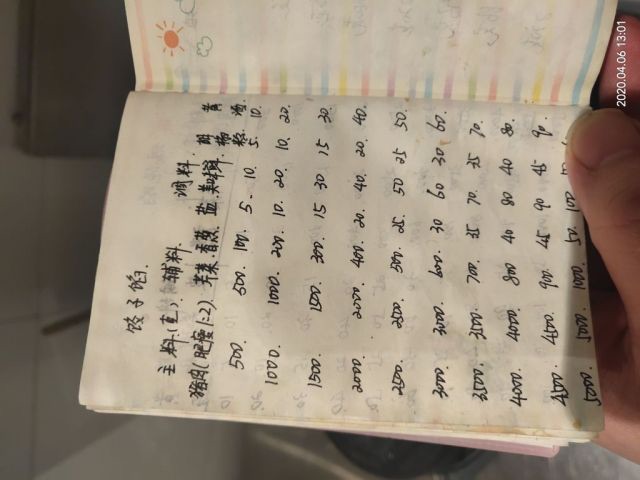 饺子馅.
主料(克). 辅料. 调料.
猪肉(肥瘦1:2) 盐.
500. 500. 100. 5. 10. 5. 10.
1000. 1000. 200. 10. 20. 10. 20.
1500. 1500. 300. 15 30 15 30.
2000. 2000. 400. 20. 40. 20. 40.
2500. 2500. 500. 25. 50 25 50.
3000. 3000. 600. 30 60 30 60.
3500. 3500. 700. 35 70. 35 70.
4000. 4000. 800 40 80 40 80.
4500. 4500. 900. 45 90 45 90.
5000. 5000. 1000. 50. 100
2020.04.06 13:01